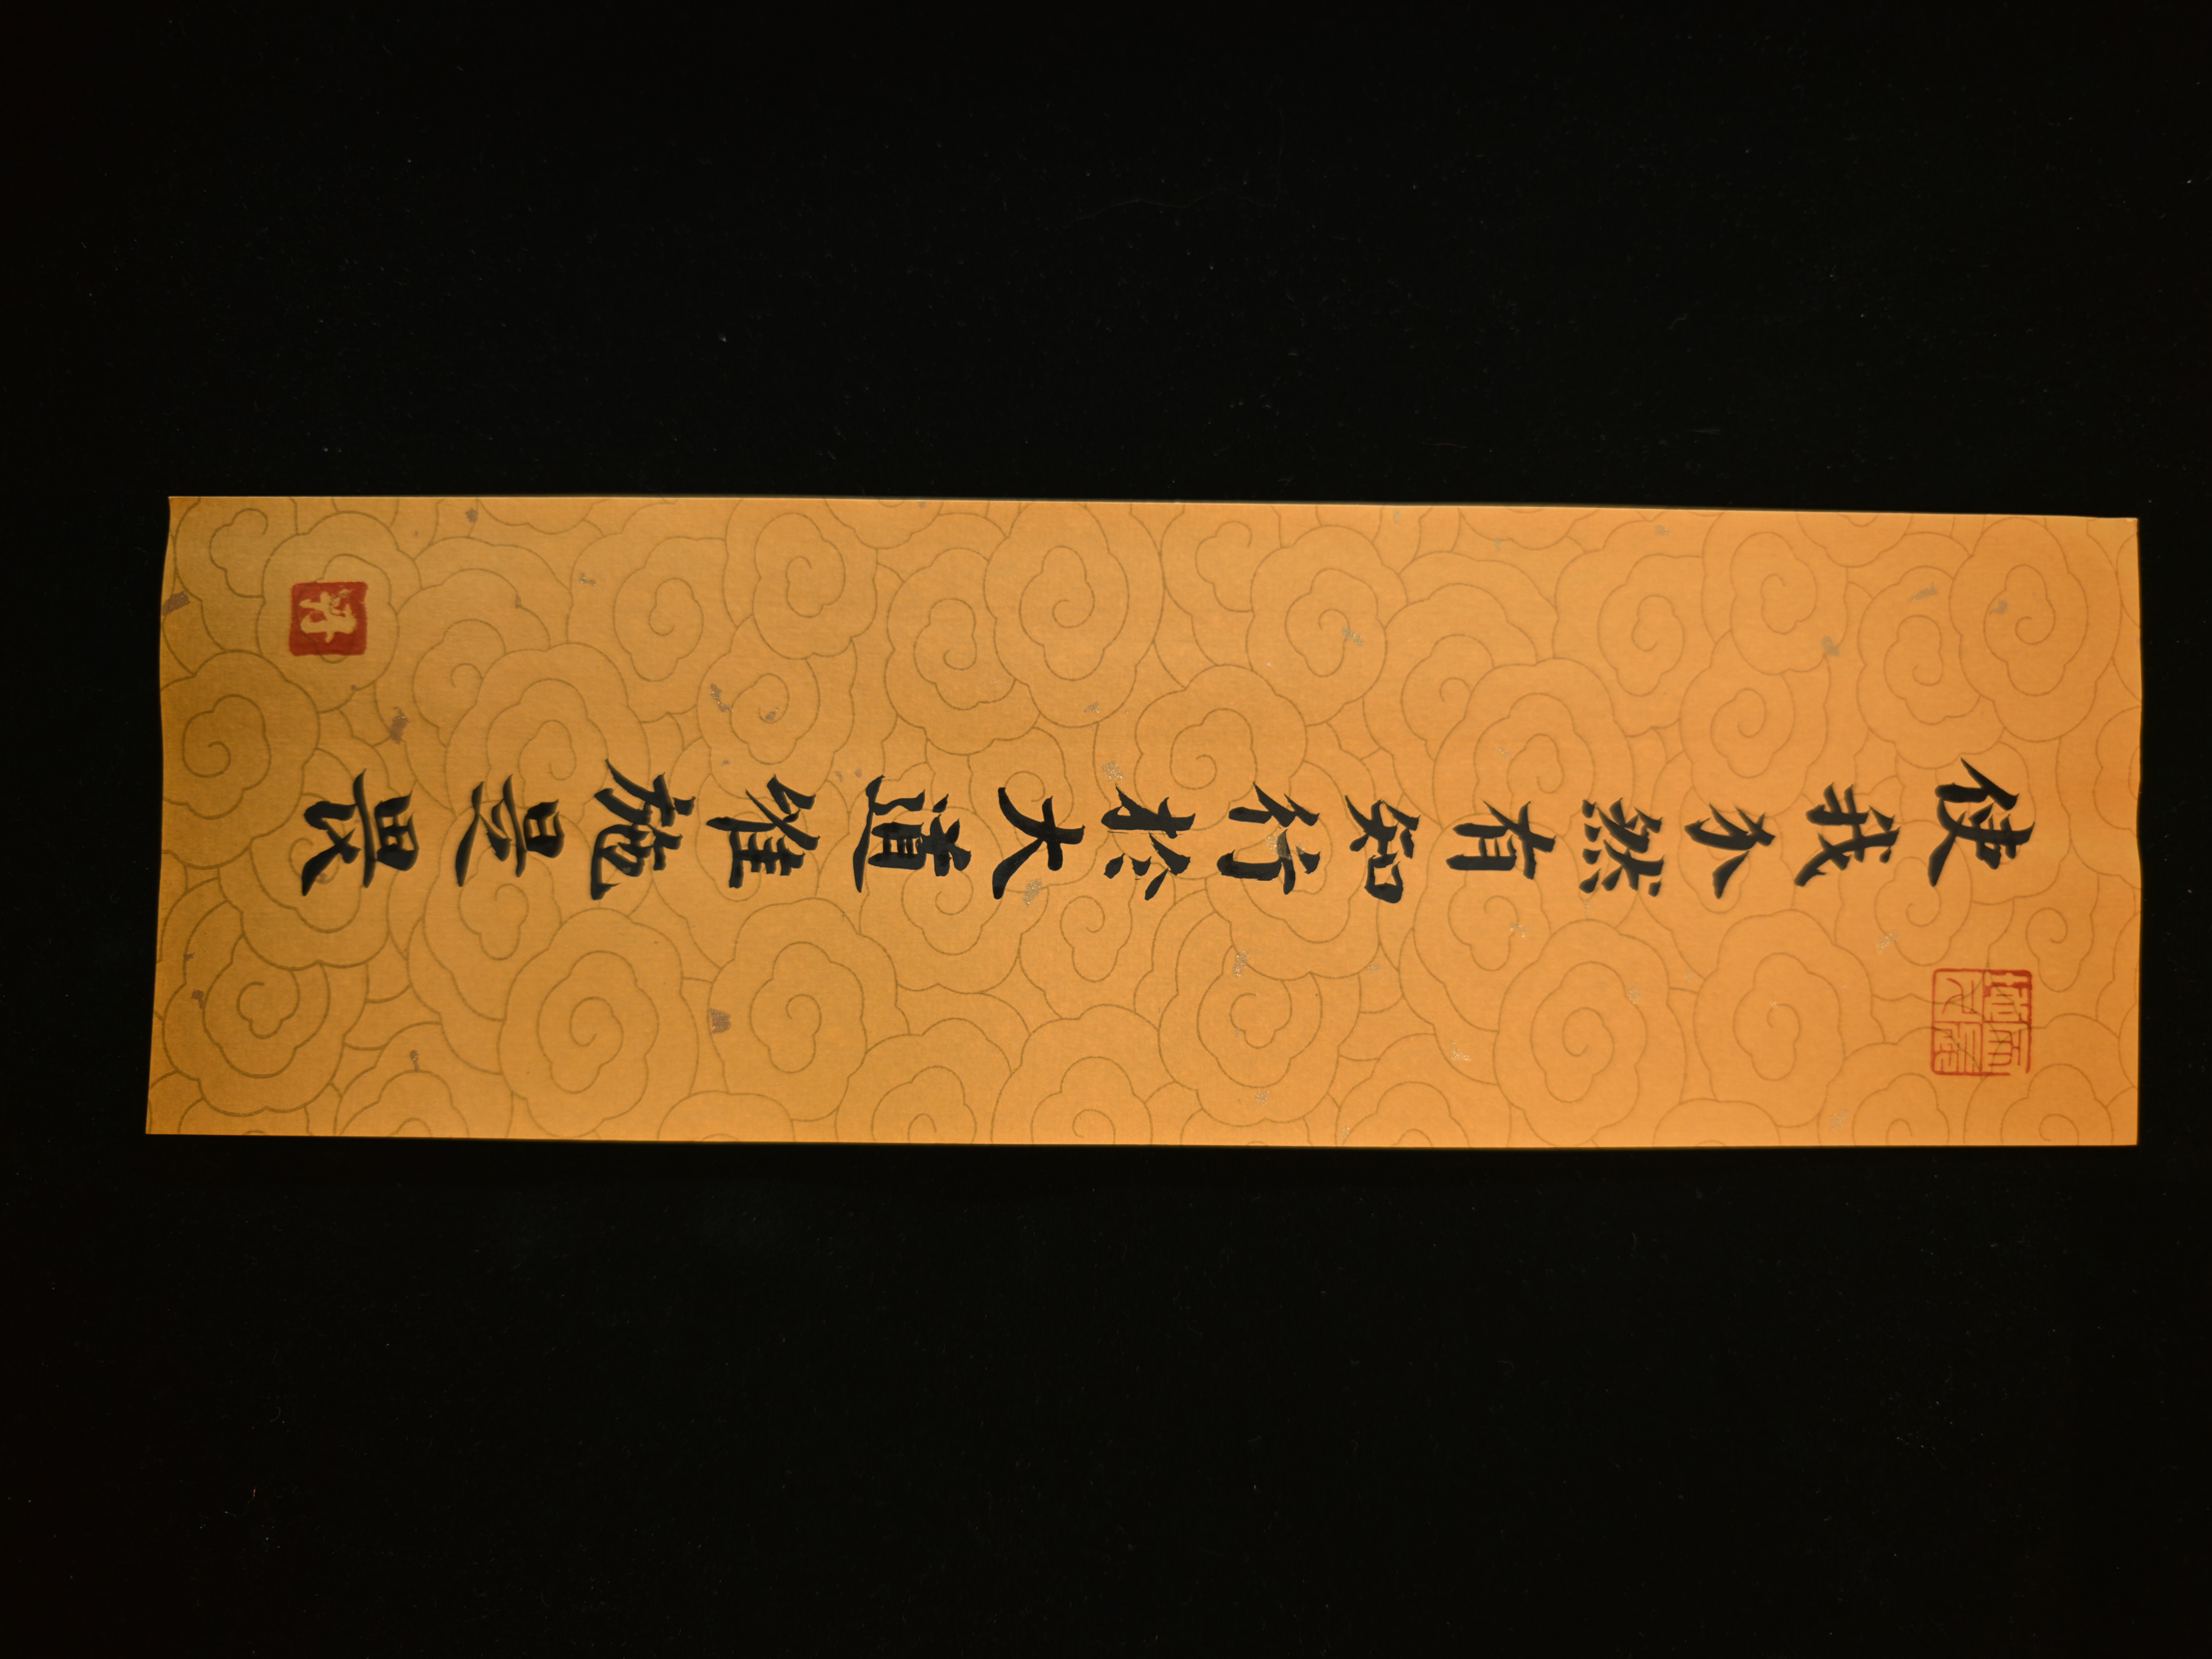 使我介然有知行於大道維施是畏